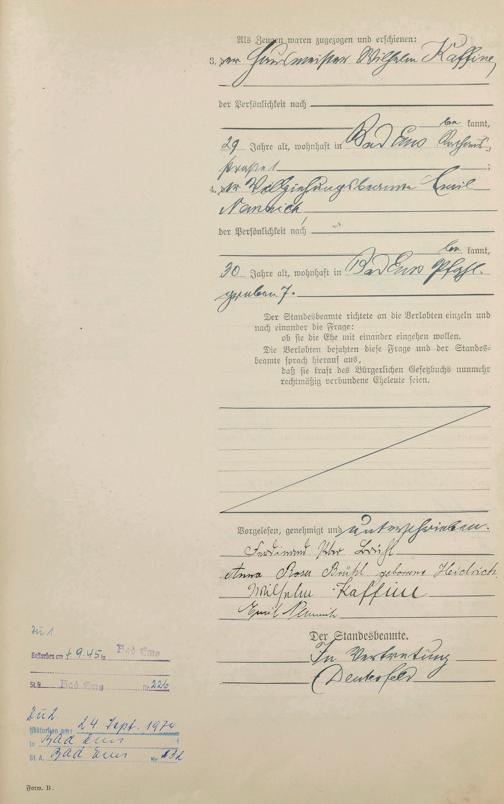 Als Zeugen waren zugezogen und erschienen:
3. der Hausmeister Wilhelm Kaffine,
der Persönlichkeit nach
be kannt,
29 Jahre alt, wohnhaft in Bad Ems Rathaus-
straße 1
4. der Vollziehungsbeamte Emil
der Persönlichkeit nach
be kannt,
30 Jahre alt, wohnhaft in Bad Ems Pfahl-
graben 7.
Der Standesbeamte richtete an die Verlobten einzeln und
nach einander die Frage:
ob sie die Ehe mit einander eingehen wollen.
Die Verlobten bejahten diese Frage und der Standes-
beamte sprach hierauf aus,
daß sie kraft des Bürgerlichen Gesetzbuchs nunmehr
rechtmäßig verbundene Eheleute seien.
Vorgelesen, genehmigt und unterschrieben.
Ferdinand
Anna Rosa Brühl geborene Heidrich
Wilhelm Kaffine
Emil
Der Standesbeamte.
In Vertretung
Zu 1
Gestorben am 9.45 in Bad Ems
St.A. Bad Ems Nr. 226
Zu 2
Gestorben am: 24 Sept. 1974
in Bad Ems
St. A. Bad Ems Nr. 232
Form. B.